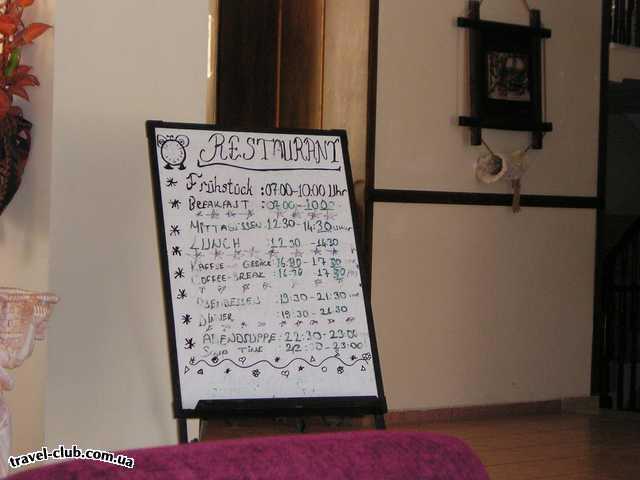 RESTAURANT
Frühstück : 07.00-10.00 Uhr
BREAKFAST : 07.00-10.00
MITTAGESSEN: 12.30-14.30
LUNCH : 12.30 - 14.30
KAFFEE - GEBÄCK: 16.30-17.30
COFFEE-BREAK : 16.30 17.30
19.30-21.30
DINNER : 19.30-21.30
ABENDSUPPE : 22.30-23.00
SOUP TIME : 22.30-23:00
travel-club.com.ua